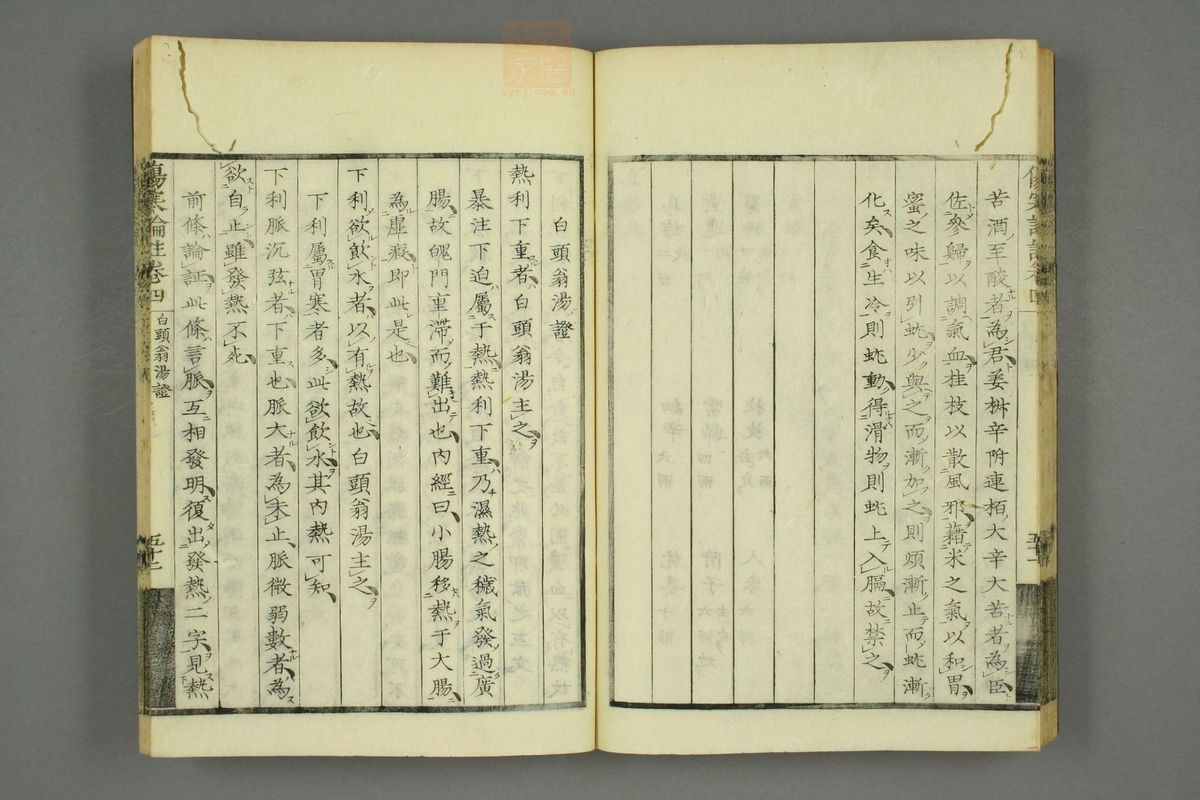 苦酒至酸者為君姜椒辛附連栢大辛大苦者為臣
佐參歸以調氣血桂枝以散風邪藉米之氣以和胃
蜜之味以引蚘少與之而漸加之則煩漸止而蚘漸
化矣食生冷則蚘動得滑物則蚘上入膈故禁之
白頭翁湯證
熱利下重者白頭翁湯主之
暴注下迫屬于熱熱利下重乃濕熱之穢氣發過廣
腸故魄門重滯而難出也內經曰小腸移熱于大腸
為虙瘕即此是也
下利欲飲水者以有熱故也白頭翁湯主之
下利屬胃寒者多此欲飲水其內熱可知
下利脈沉弦者下重也脈大者為未止脈微弱數者為
欲自止雖發熱不死
前條論証此條言脈互相發明復出發熱二字見熱
傷寒論註卷四
白頭翁湯證
五十二
zysj.com.cn